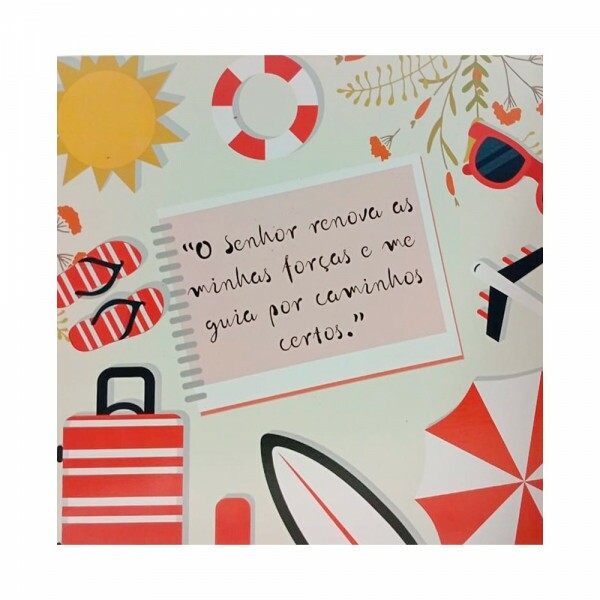 “O Senhor renova as
minhas forças e me
guia por caminhos
certos.”